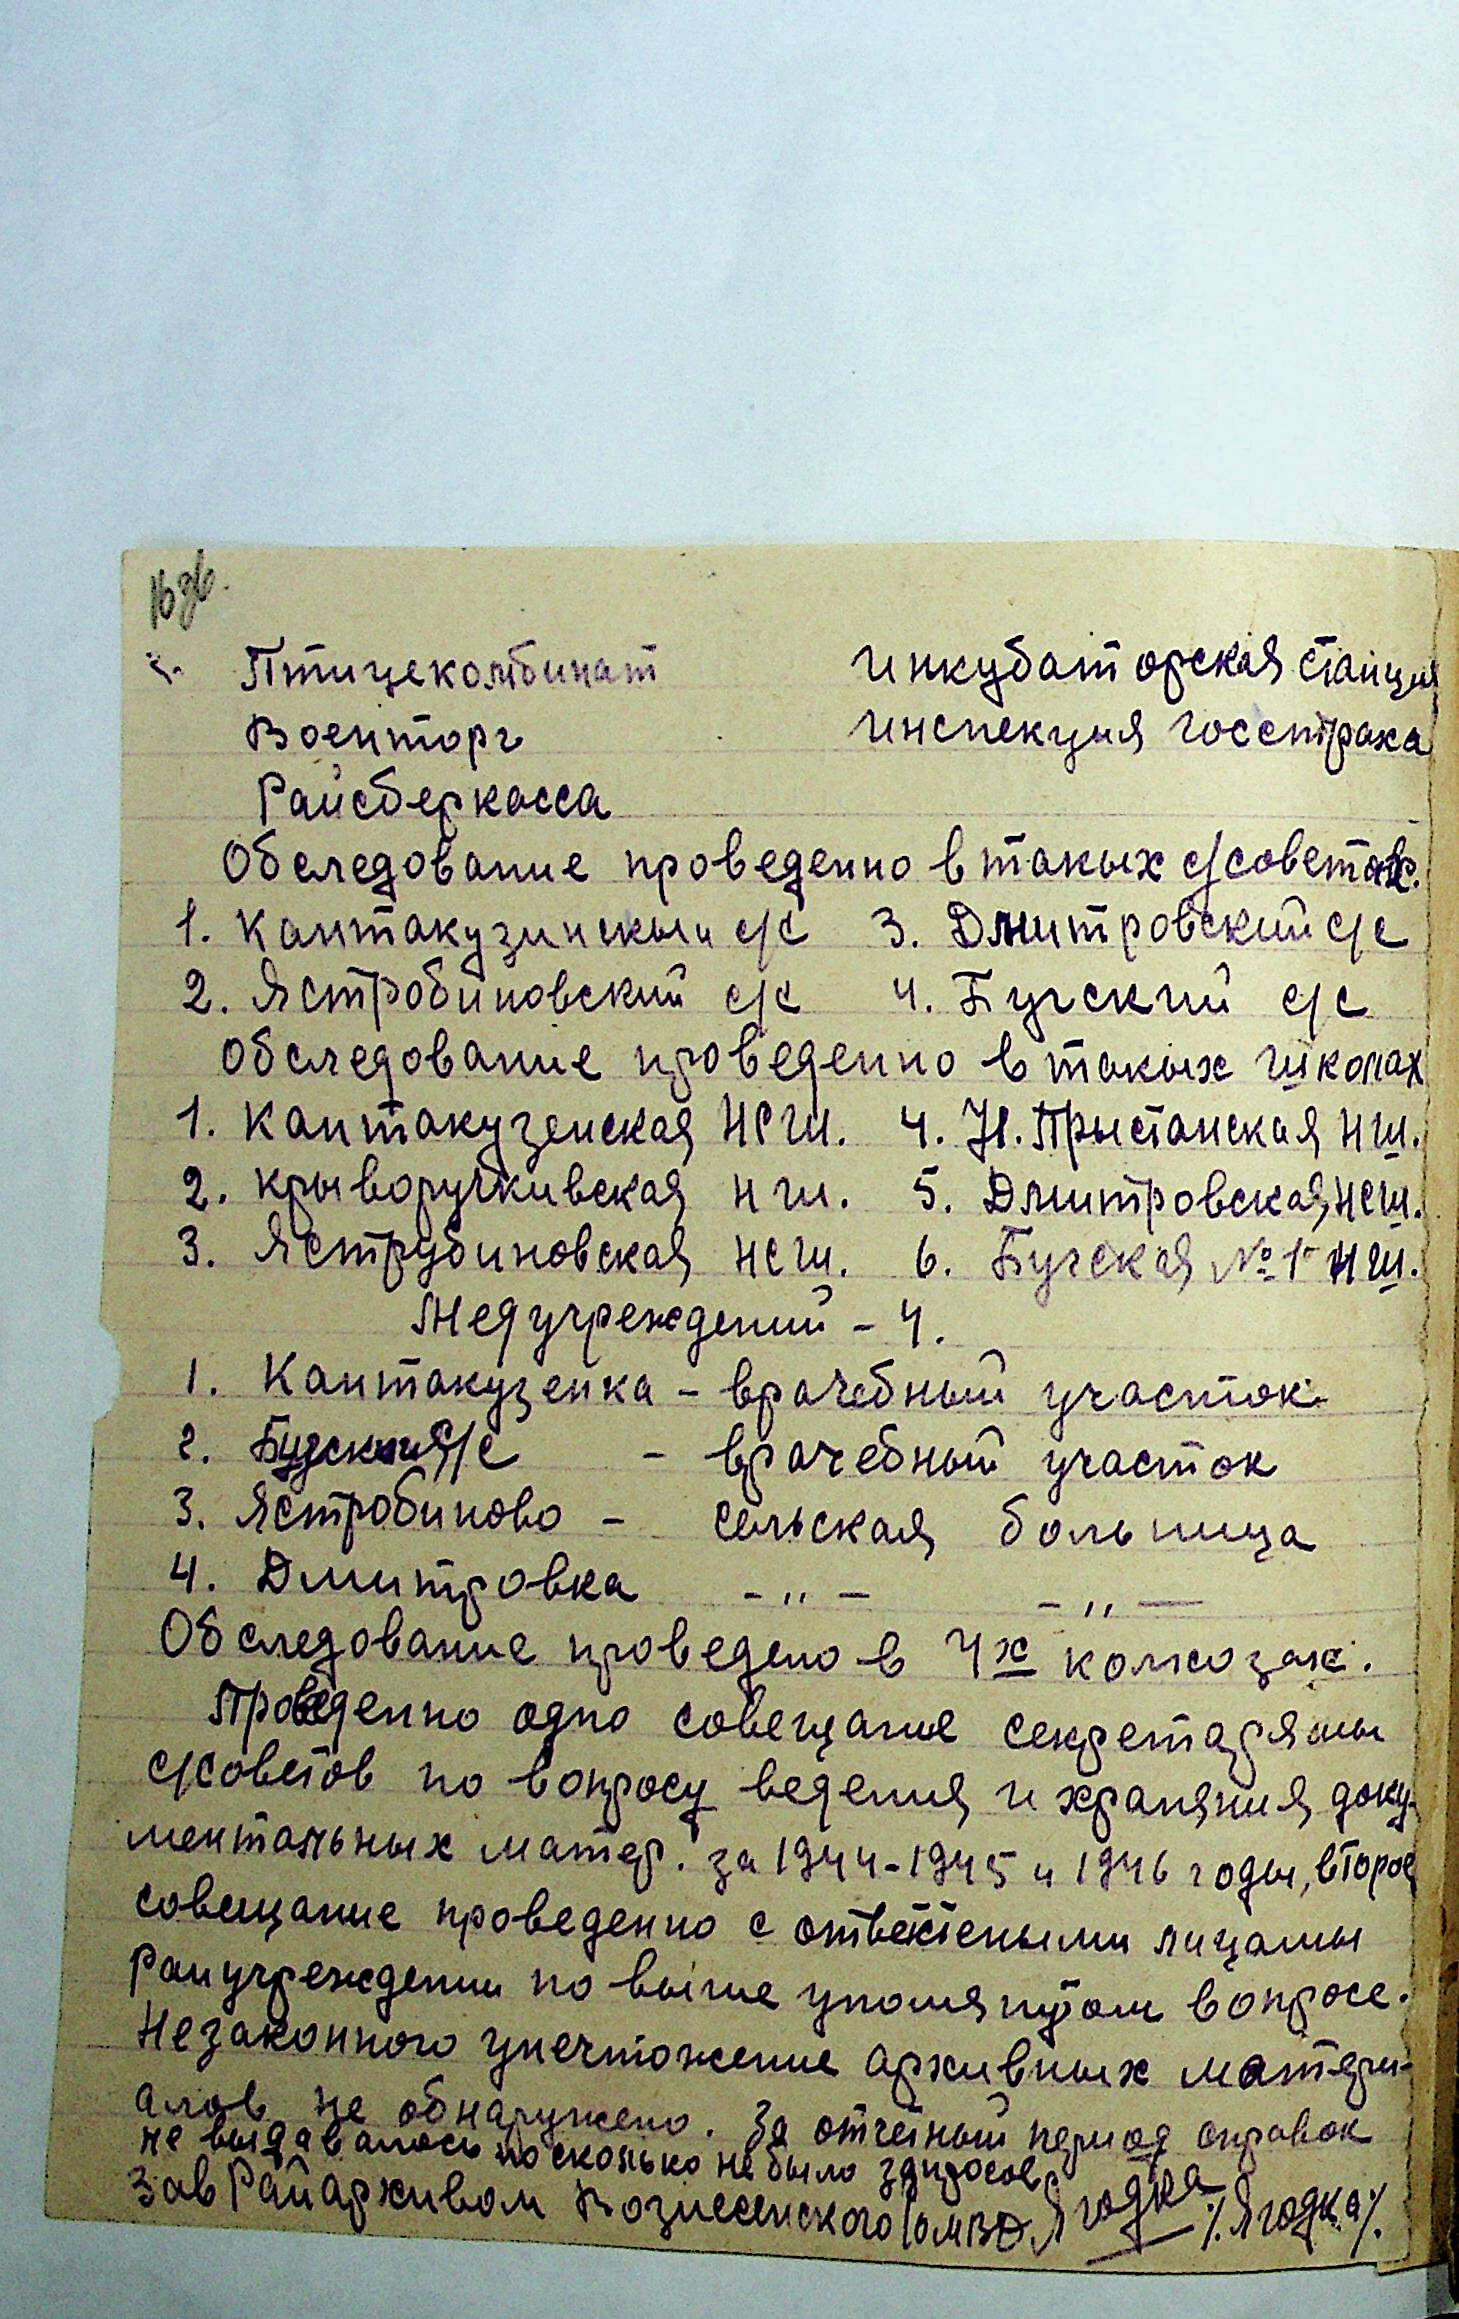 16 зв.
Птицекомбинат Инкубаторская станция
Военторг Инспекция госстраха
Райсберкасса
Обследование проведенно в такых с/советах.
1. Кантакузинскыи с/с 3. Дмитровский с/с
2. Ястробиновский с/с 4. Бугский с/с
Обследование проведенно в такых школах
1. Кантакузенская НСШ. 4. Н.Прыстанская НШ.
2. Крыворучкивская НШ. 5. Дмитровская НСШ.
3. Яструбиновская НСШ. 6. Бугская №1 НШ.
Медучреждений – 4.
1. Кантакузенка – врачебный участок
2. с/с – врачебный участок
3. Ястробиново – сельская больница
4. Дмитровка –„– –„–
Обследование проведено в 4х колхозах.
Проведенно одно совещание секретарямы
с/советов по вопросу ведения и храняния доку-
ментальных матер. за 1944-1945 и 1946 годы, второе
совещание проведенно с ответстеными лицамы
Раиучреждении по выше упомянутом вопросе.
Незаконного унечтожение архивных матери-
алов не обнаружено. За отчетный период справок
не выдавалось посколько не было запросов
Зав Райархивом Вознесенского РОМВД Ягодка /Ягодка/.